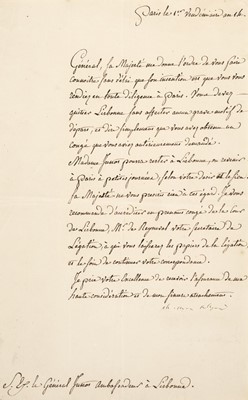 Paris le 1er Vendémiaire an 14.
Général, Sa Majesté me donne l'ordre de vous faire
connoître sans délai que son intention est que vous vous
rendiez en toute diligence à Paris. Vous devez
quitter Lisbonne sans affecter aucun grave motif de
départ, et dire simplement que vous avez obtenu un
congé que vous aviez antérieurement demandé.
Madame Junot pourra rester à Lisbonne, ou revenir
à Paris à petites journées, selon votre désir et le sien.
Sa Majesté ne vous prescrit rien à cet égard. Je vous
recommande d'accréditer en prenant congé de la Cour
de Lisbonne, Mr. de Rayneval votre Secrétaire de
Légation, à qui vous laisserez les papiers de la légation
et le soin de continuer votre correspondance.
Je prie votre Excellence de recevoir l'assurance de ma
haute considération et de mon sincère attachement.
S. Ex. le Général Junot Ambassadeur à Lisbonne.